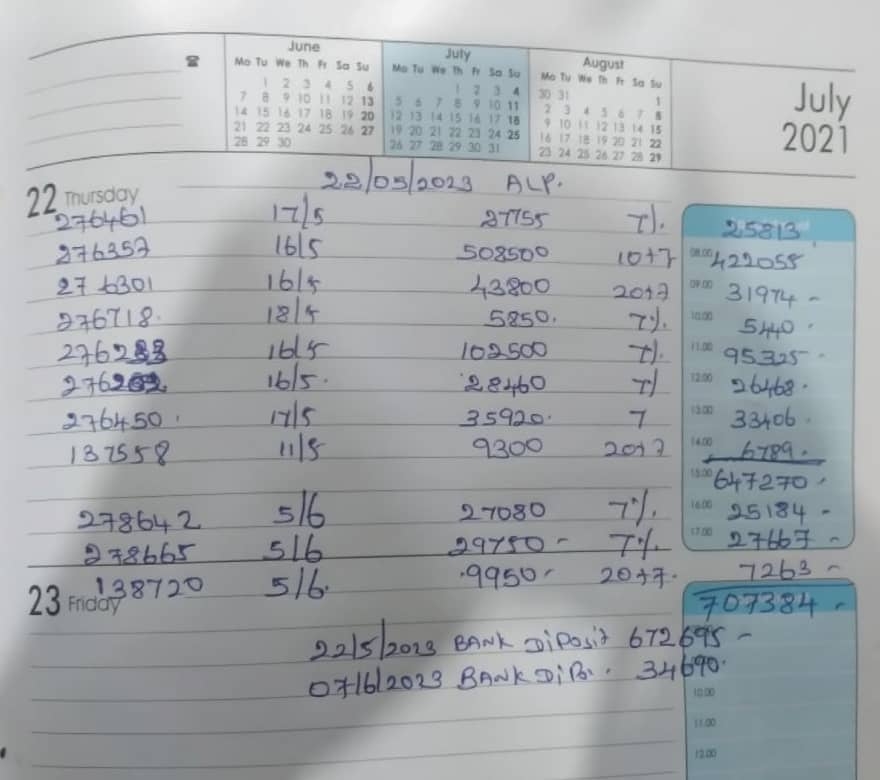 June
Mo Tu We Th Fr Sa Su
1 2 3 4 5 6
7 8 9 10 11 12 13
14 15 16 17 18 19 20
21 22 23 24 25 26 27
28 29 30
July
Mo Tu We Th Fr Sa Su
1 2 3 4
5 6 7 8 9 10 11
12 13 14 15 16 17 18
19 20 21 22 23 24 25
26 27 28 29 30 31
August
Mo Tu We Th Fr Sa Su
30 31 1
2 3 4 5 6 7 8
9 10 11 12 13 14 15
16 17 18 19 20 21 22
23 24 25 26 27 28 29
July
2021
22/05/2023 ALP.
22 Thursday
276461 17/5 27755 7%. 25813
276357 16/5 508500 10+7 08.00 422055
276301 16/5 43800 20+7 09.00 31974 -
276718. 18/5 5850. 7%. 10.00 5440 .
276233 16/5 102500 7%. 11.00 95325 -
16/5. 28460 7% 12.00 26468.
276450. 17/5 35920. 7 13.00 33406.
137558 11/5 9300 20+7 14.00 6789.
15.00 647270 -
278642 5/6 27080 7%. 16.00 25184 -
278665 5/6 29750 - 7%. 17.00 27667 -
138720 5/6. 9950 - 20+7. 7263 -
23 Friday
707384 -
22/5/2023 BANK DiPosit 672695 -
07/6/2023 BANK DiPo. 34690.
10.00
11.00
12.00